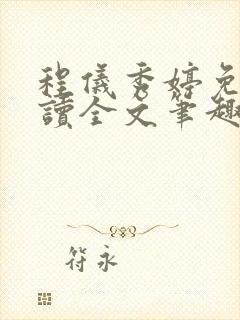 程儀秀婷免
讀全文筆趣
符永